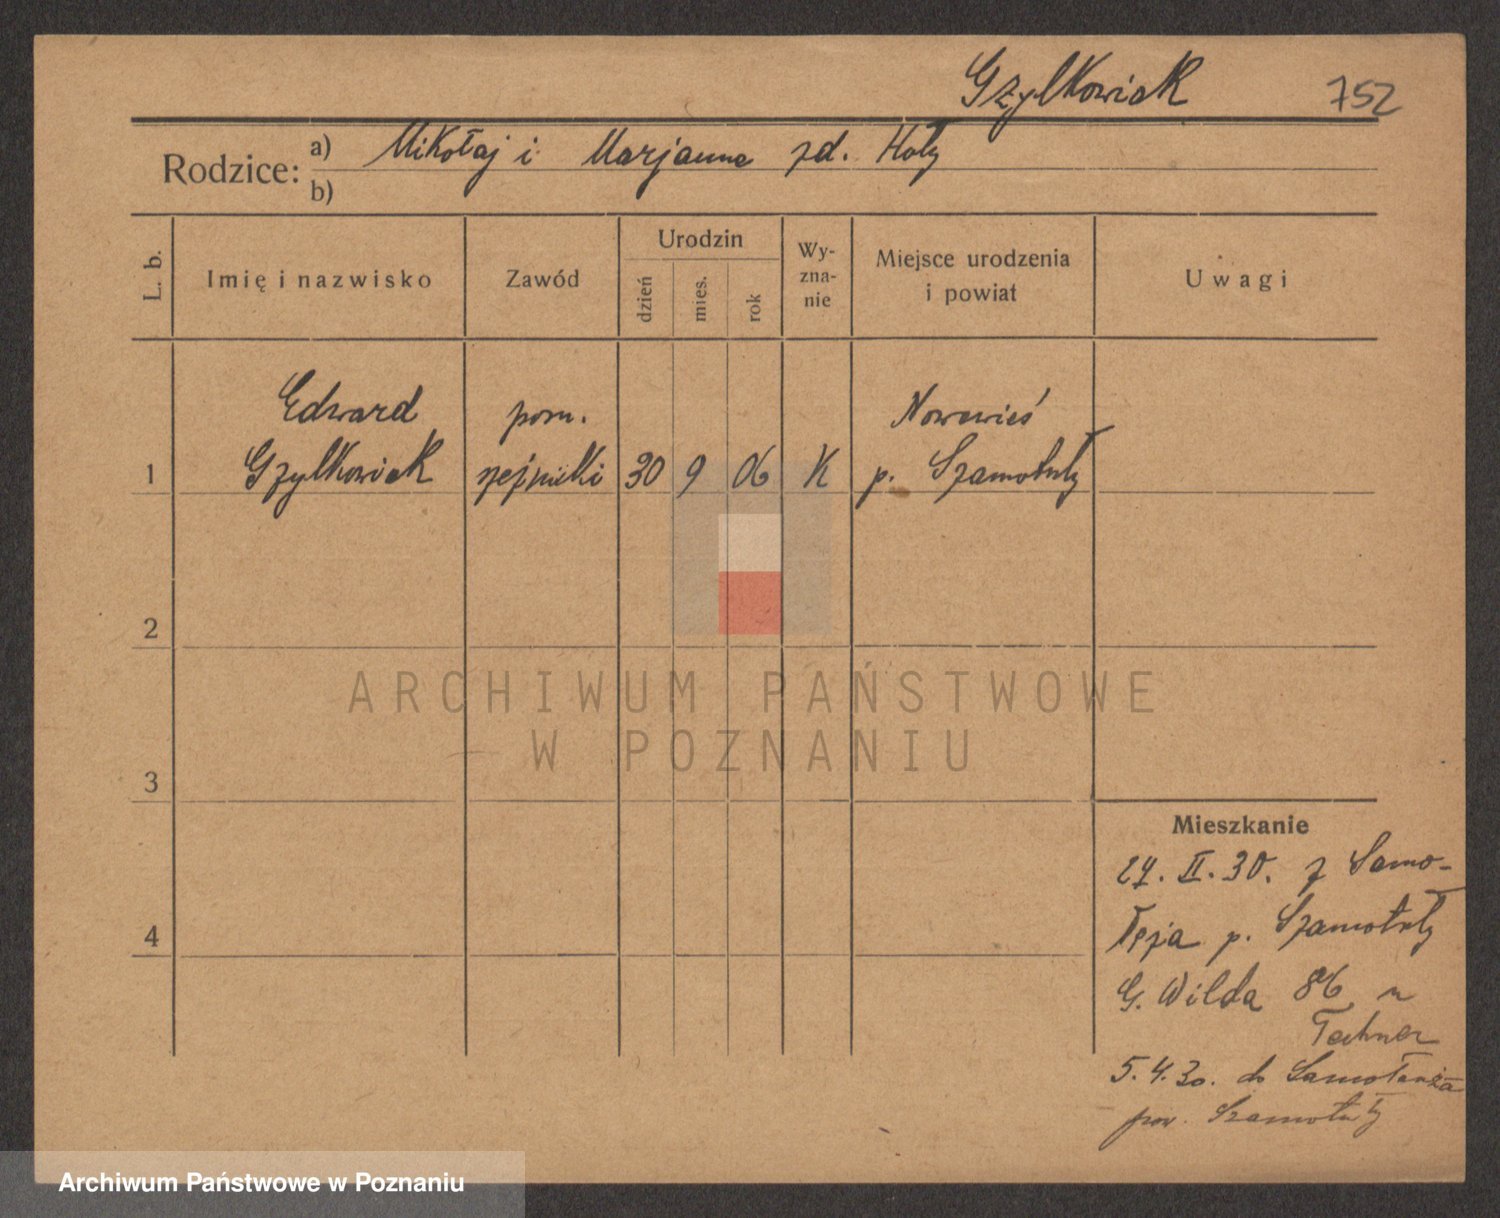 Gzylkowiak 752
Rodzice: a) Mikołaj i Marjanna zd. Hoły
b)
L. b. Imię i nazwisko Zawód Urodzin dzień mies. rok Wy-zna-nie Miejsce urodzenia i powiat Uwagi
Edward pom. Nowawieś
1 Gzylkowiak rzeźnicki 30 9 06 K p. Szamotuły
2
3
4
Mieszkanie
27. II. 30. z Samo-
p. Szamotuły
G. Wilda 86 u
5.4.30. do
pow. Szamotuły
ARCHIWUM PAŃSTWOWE
W POZNANIU
Archiwum Państwowe w Poznaniu